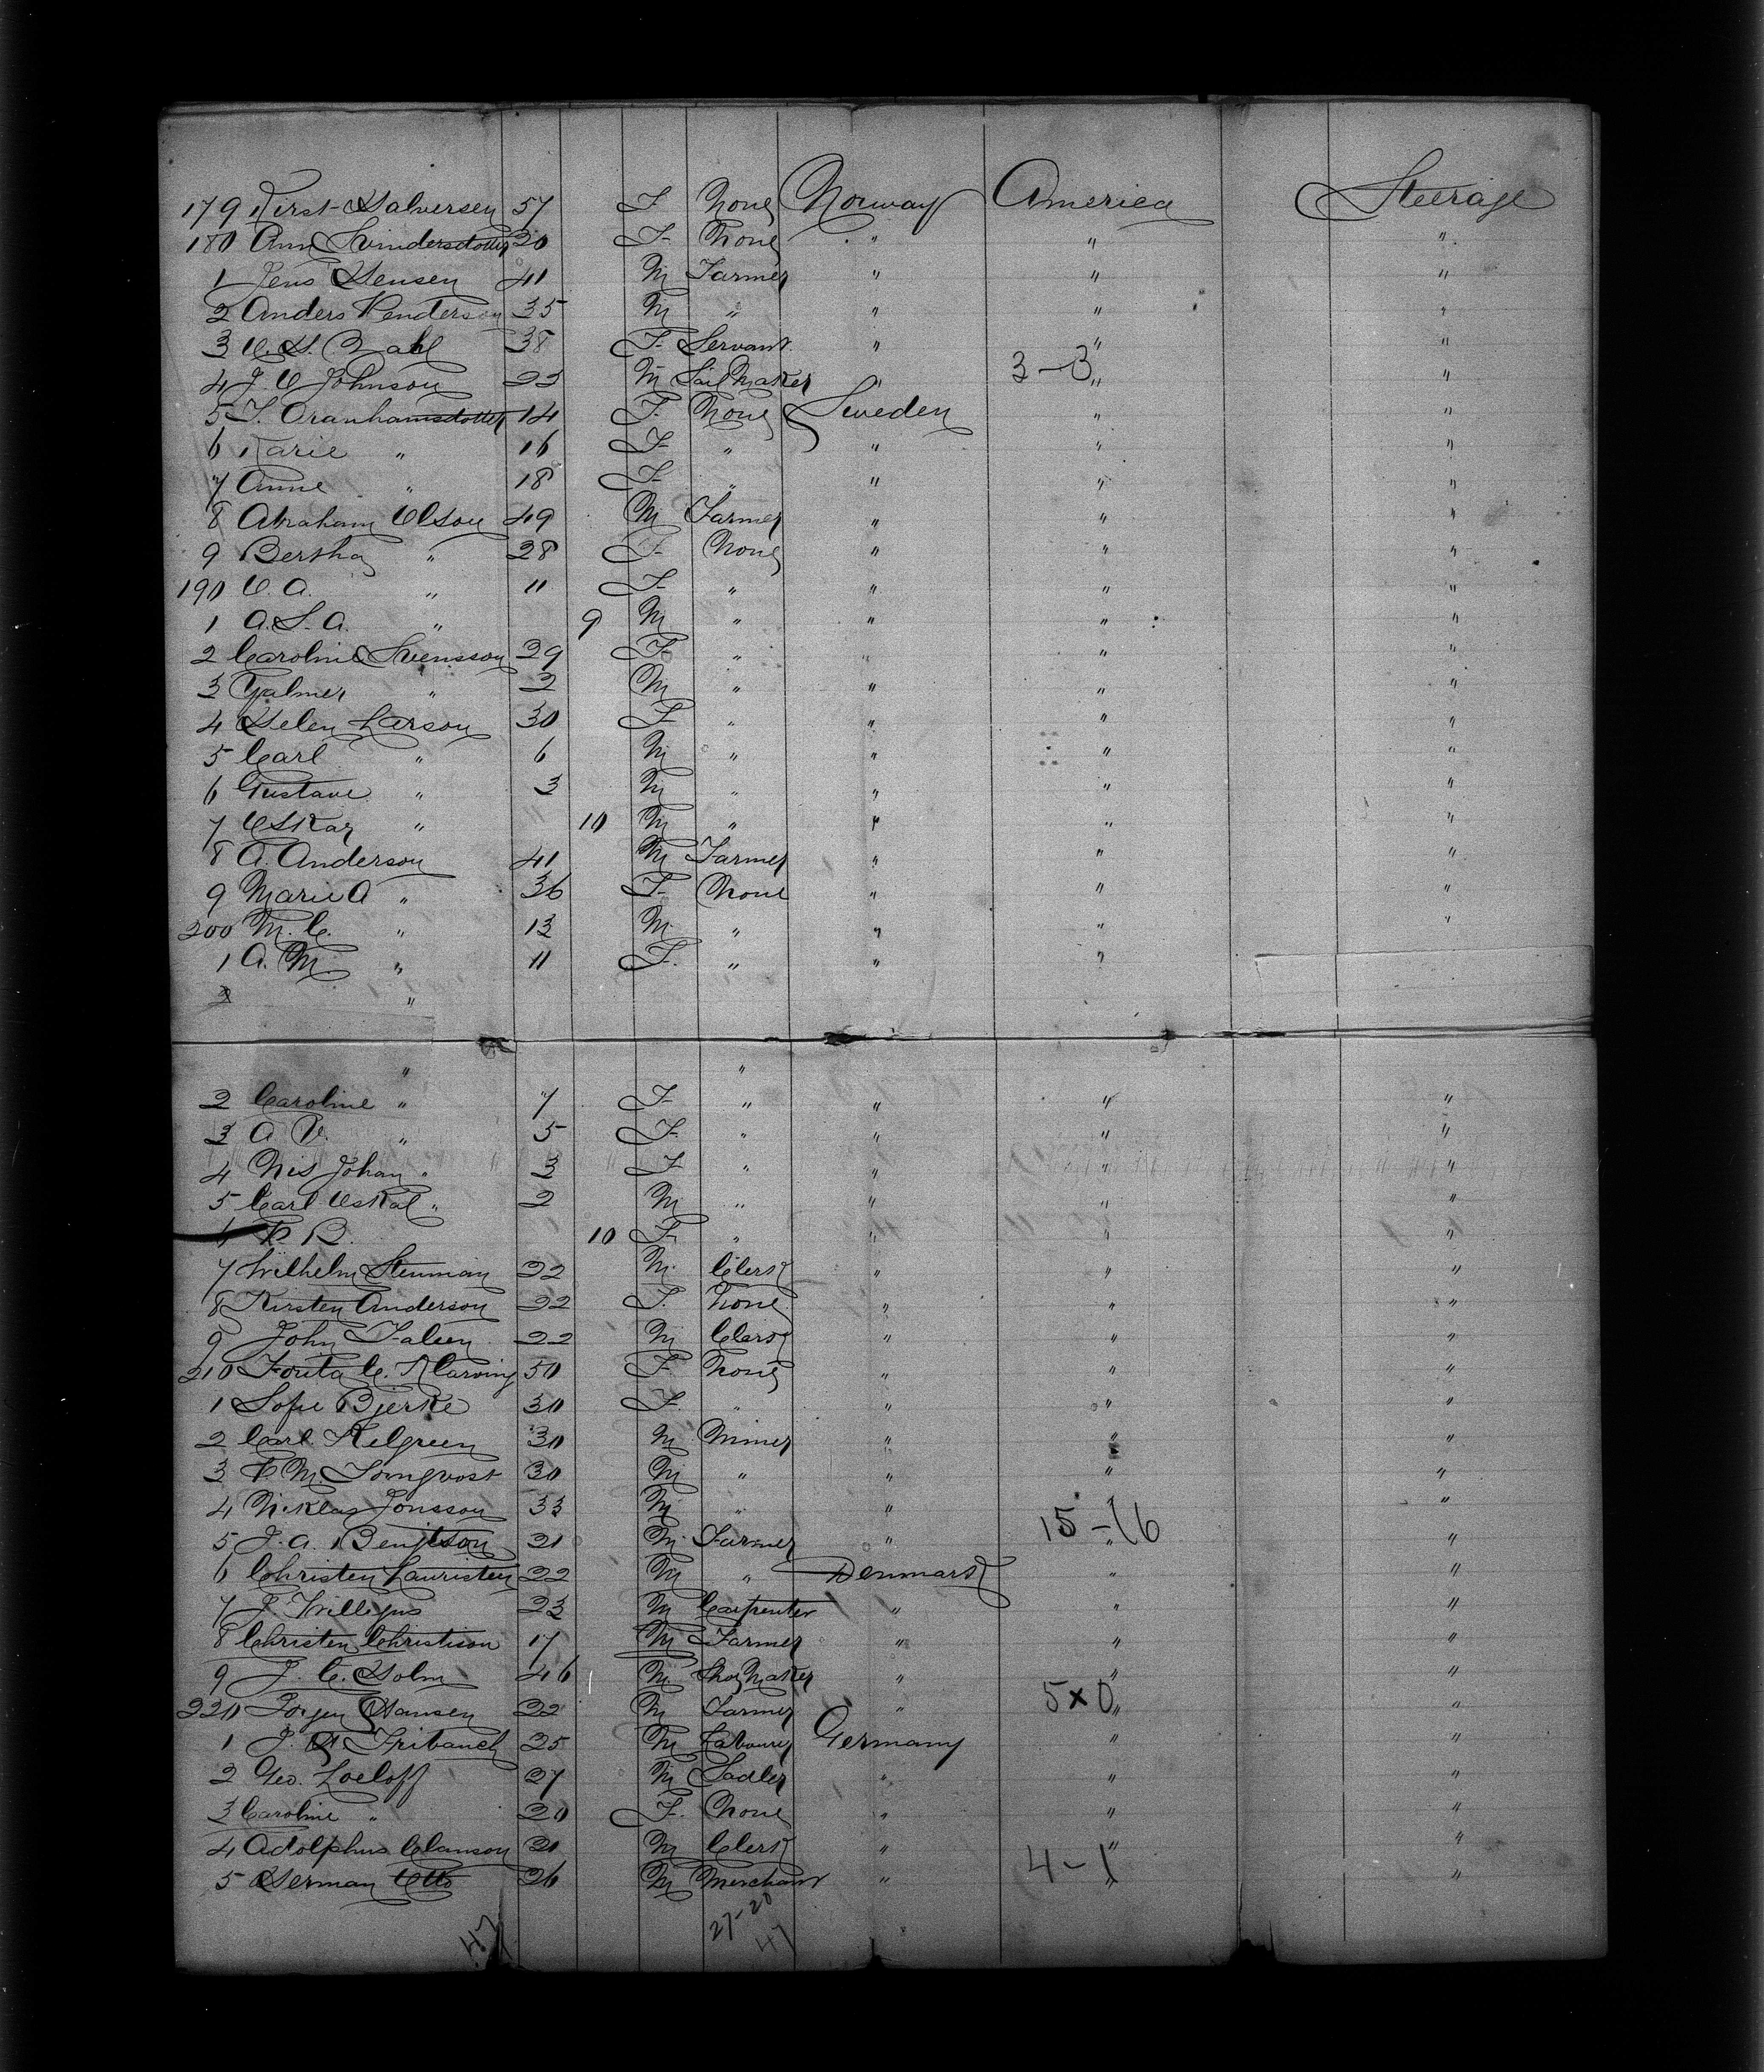 179 Kirst Halversen 57 F None Norway America Steerage
180 Ann Svindersdotter 20 F None " " "
1 Jens Hensen 41 M Farmer " " "
2 Anders Henderson 35 M " " " "
3 O. H. Dahl 38 F Servant " " "
4 J. O Johnson 23 M Sail Maker " 3-3 " "
5 T. Oranhamsdotter 14 F None Sweden " "
6 Karie " 16 F " " " "
7 Anne " 18 F " " " "
8 Abraham Olson 49 M Farmer " " "
9 Bertha " 28 F None " " "
190 O. A. " 11 F " " " "
1 A. S. A. " 9 M " " " "
2 Caroline Svensson 29 F " " " "
3 Yalmer " 2 M " " " "
4 Helen Larson 30 F " " " "
5 Carl " 6 M " " " "
6 Gustave " 3 M " " " "
7 Oskar " 10 M " " " "
8 A. Anderson 41 M Farmer " " "
9 Marie A " 36 F None " " "
200 M. C. " 13 M " " " "
1 A. M " 11 F " " "
2 "
" "
2 Caroline " 7 F " " " "
3 A V. " 5 F " " " "
4 Nis Johan " 3 F " " " "
5 Carl Oskal " 2 M " " " "
6 B. 10 F " " " "
7 Wilhelm Stenman 22 M Clerk " " "
8 Kirsten Anderson 22 F None " " "
9 John Falsen 22 M Clerk " " "
210 C. Klarving 50 F None " " "
1 Sofie Bjerke 30 F " " " "
2 Carl Kelgreen 30 M Miner " " "
3 M. 30 M " " " "
4 Niklas Jonsson 33 M " " " "
5 J. A. Bengtson 21 M Farmer " 15-16 " "
6 Christen Lauristen 22 M " Denmark " "
7 J. Willigus 23 M Carpenter " " "
8 Christen Christison 17 M Farmer " " "
9 J. C. Holm 46 M Shoe Maker " " "
220 Jorgen Hansen 22 M Farmer " 5x0 " "
1 J. Fribauch 25 M Labourer Germany " "
2 Geo. Loeloff 27 M Sadler " " "
3 Caroline " 20 F. None " " "
4 Adolphus Clanson 21 M Clerk " " "
5 Herman Otto 26 M Merchant " 4-1 " "
27-20
47 47